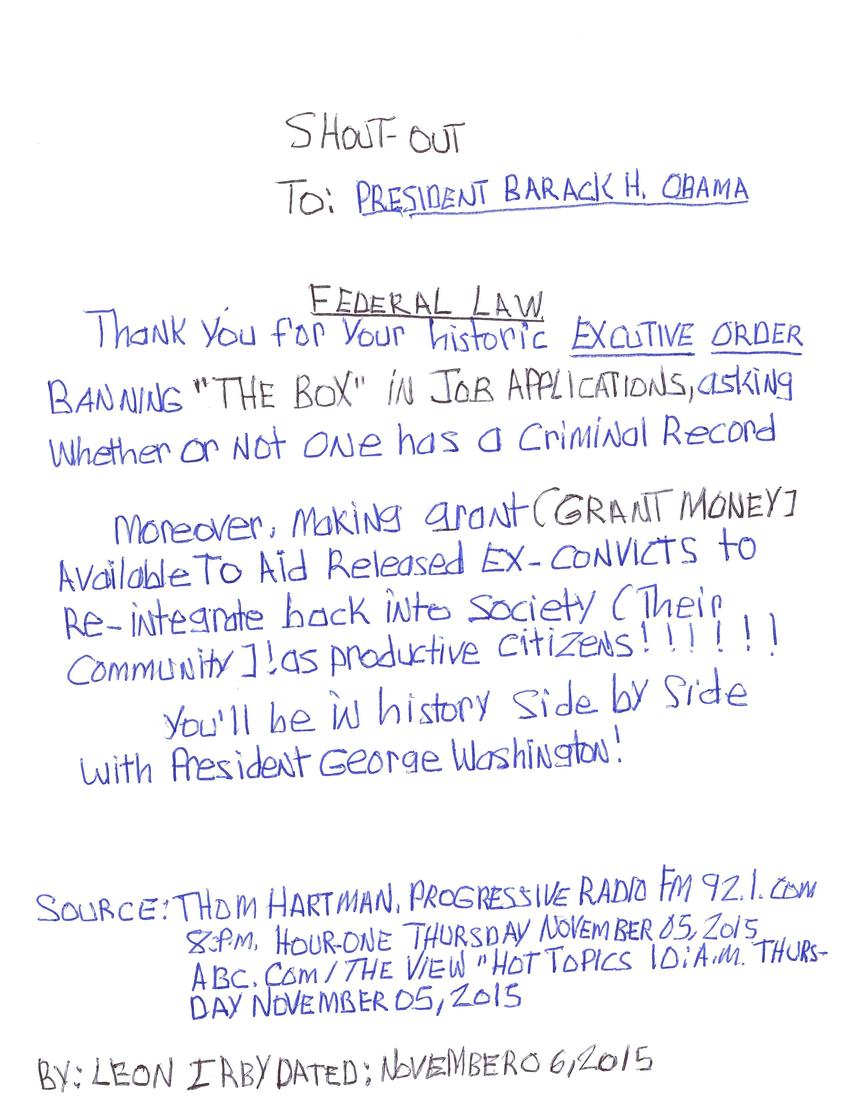 SHOUT-OUT
To: PRESIDENT BARACK H. OBAMA
FEDERAL LAW
Thank you for your historic EXCUTIVE ORDER
BANNING "THE BOX" iN JOB APPLICATIONS, asking
Whether or Not ONE has a Criminal Record
Moreover, Making grant (GRANT MONEY]
Available To Aid Released EX-CONVICTS to
Re-integrate back into Society (Their
Community]! as productive citizens!!!!!!
You'll be in history Side by Side
with President George Washington!
SOURCE: THOM HARTMAN, PROGRESSIVE RADIO FM 92.1.COM
8:P.M. HOUR-ONE THURSDAY NOVEMBER 05, 2015
ABC.COM/THE VIEW "HOT TOPICS 10:A.M. THURS-
DAY NOVEMBER 05, 2015
BY: LEON IRBY DATED; NOVEMBER 06, 2015